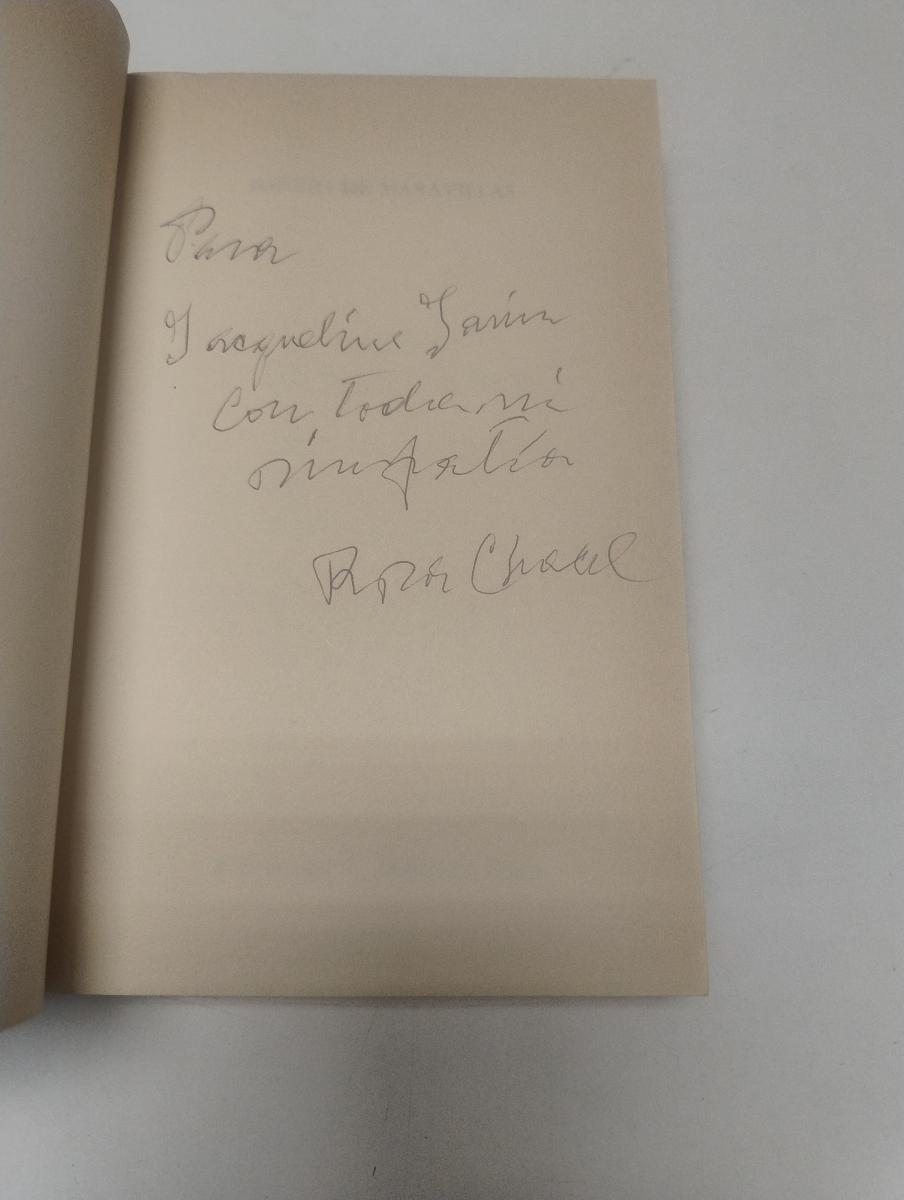 BARRIO DE MARAVILLAS
Para
Jacqueline
con toda mi
simpatía
Rosa Chacel